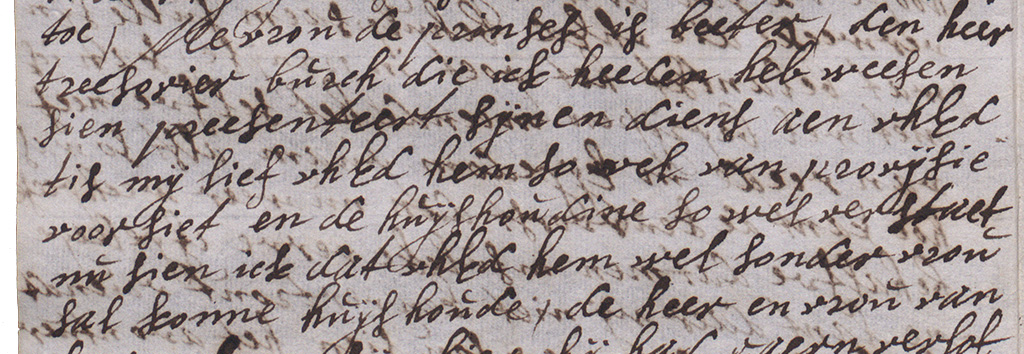 toe, Mevrou de prinses is beeter, den heer
treesorier burch die ick heeden heb weesen
sien preesenteert sijnen diens aen vhEd
tis my lief vhEd hem so wel van provijsie
voorsiet en de huijshoudine so wel verstaet
nu sien ick dat vhEd hem wel sonder vrou
sal konne huijshoude, de heer en vrou van